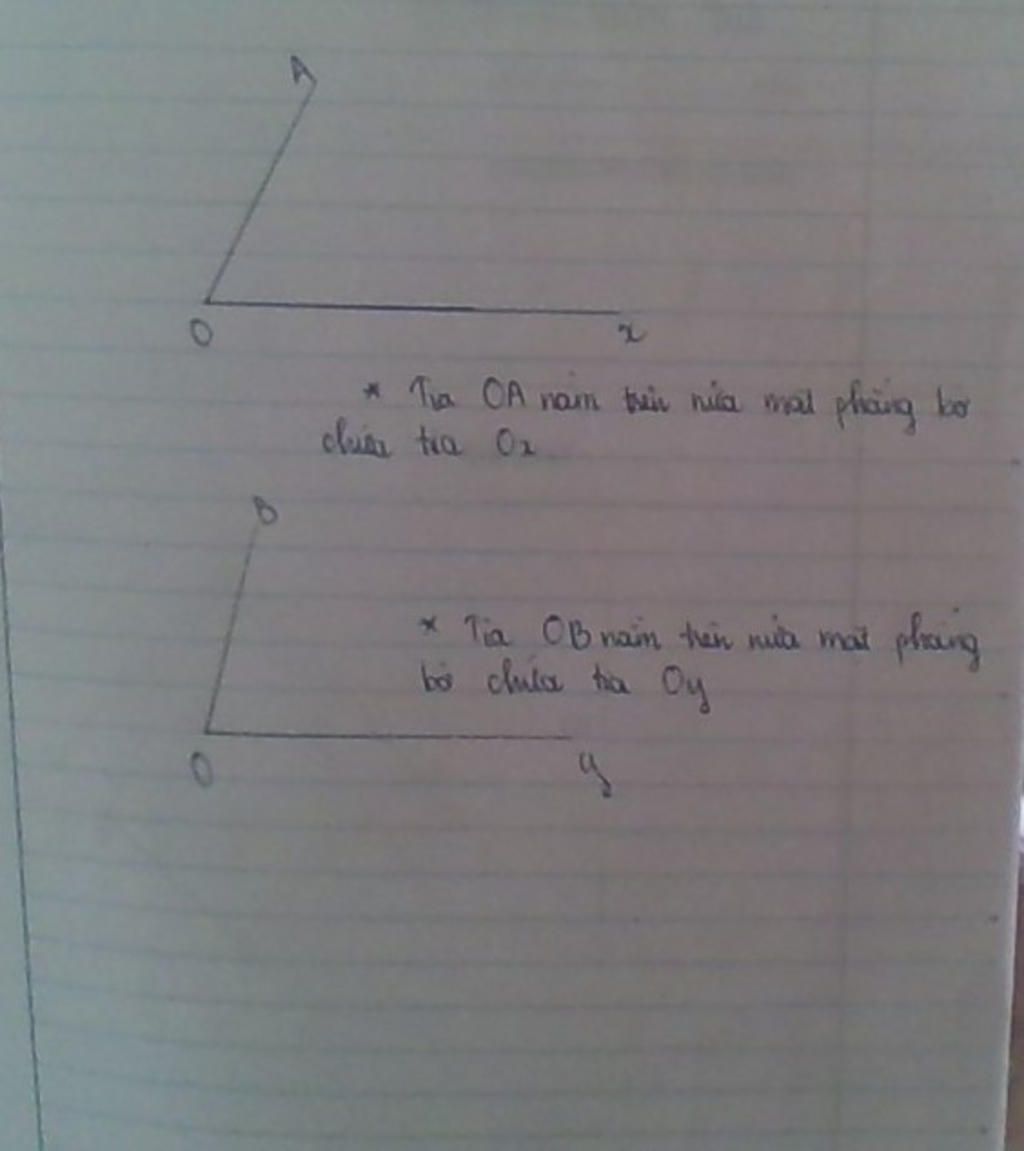 A
O
x
* Tia OA nằm trên nửa mặt phẳng bờ
chứa tia Ox
B
* Tia OB nằm trên nửa mặt phẳng
bờ chứa tia Oy
O
y